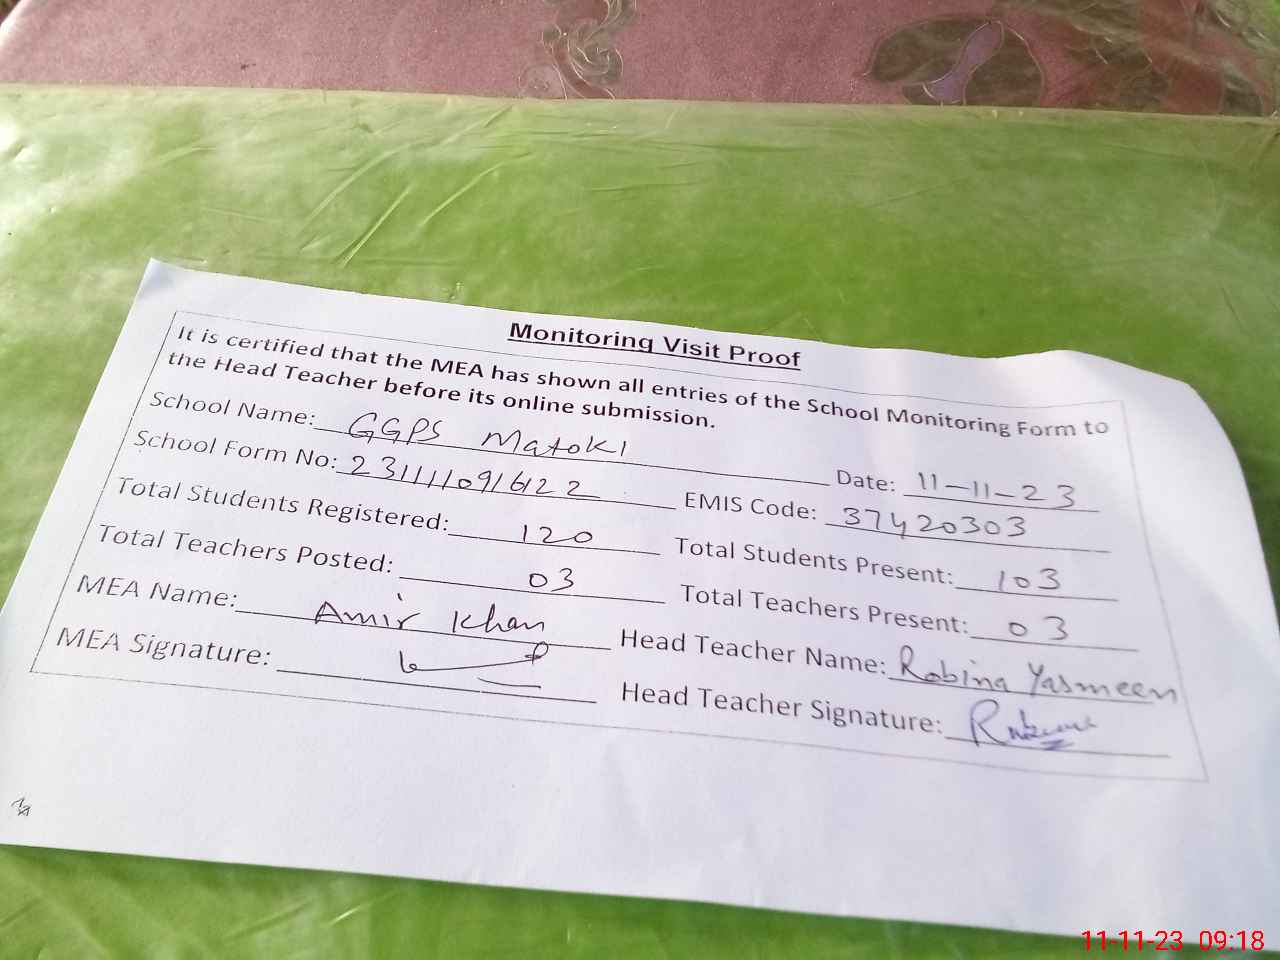 Monitoring Visit Proof
It is certified that the MEA has shown all entries of the School Monitoring Form to
the Head Teacher before its online submission.
School Name: GGPS Matoki Date: 11-11-23
School Form No: 2311110916122 EMIS Code: 37420303
Total Students Registered: 120 Total Students Present: 103
Total Teachers Posted: 03 Total Teachers Present: 03
MEA Name: Amir Khan Head Teacher Name: Robina Yasmeen
MEA Signature: Head Teacher Signature:
11-11-23 09:18